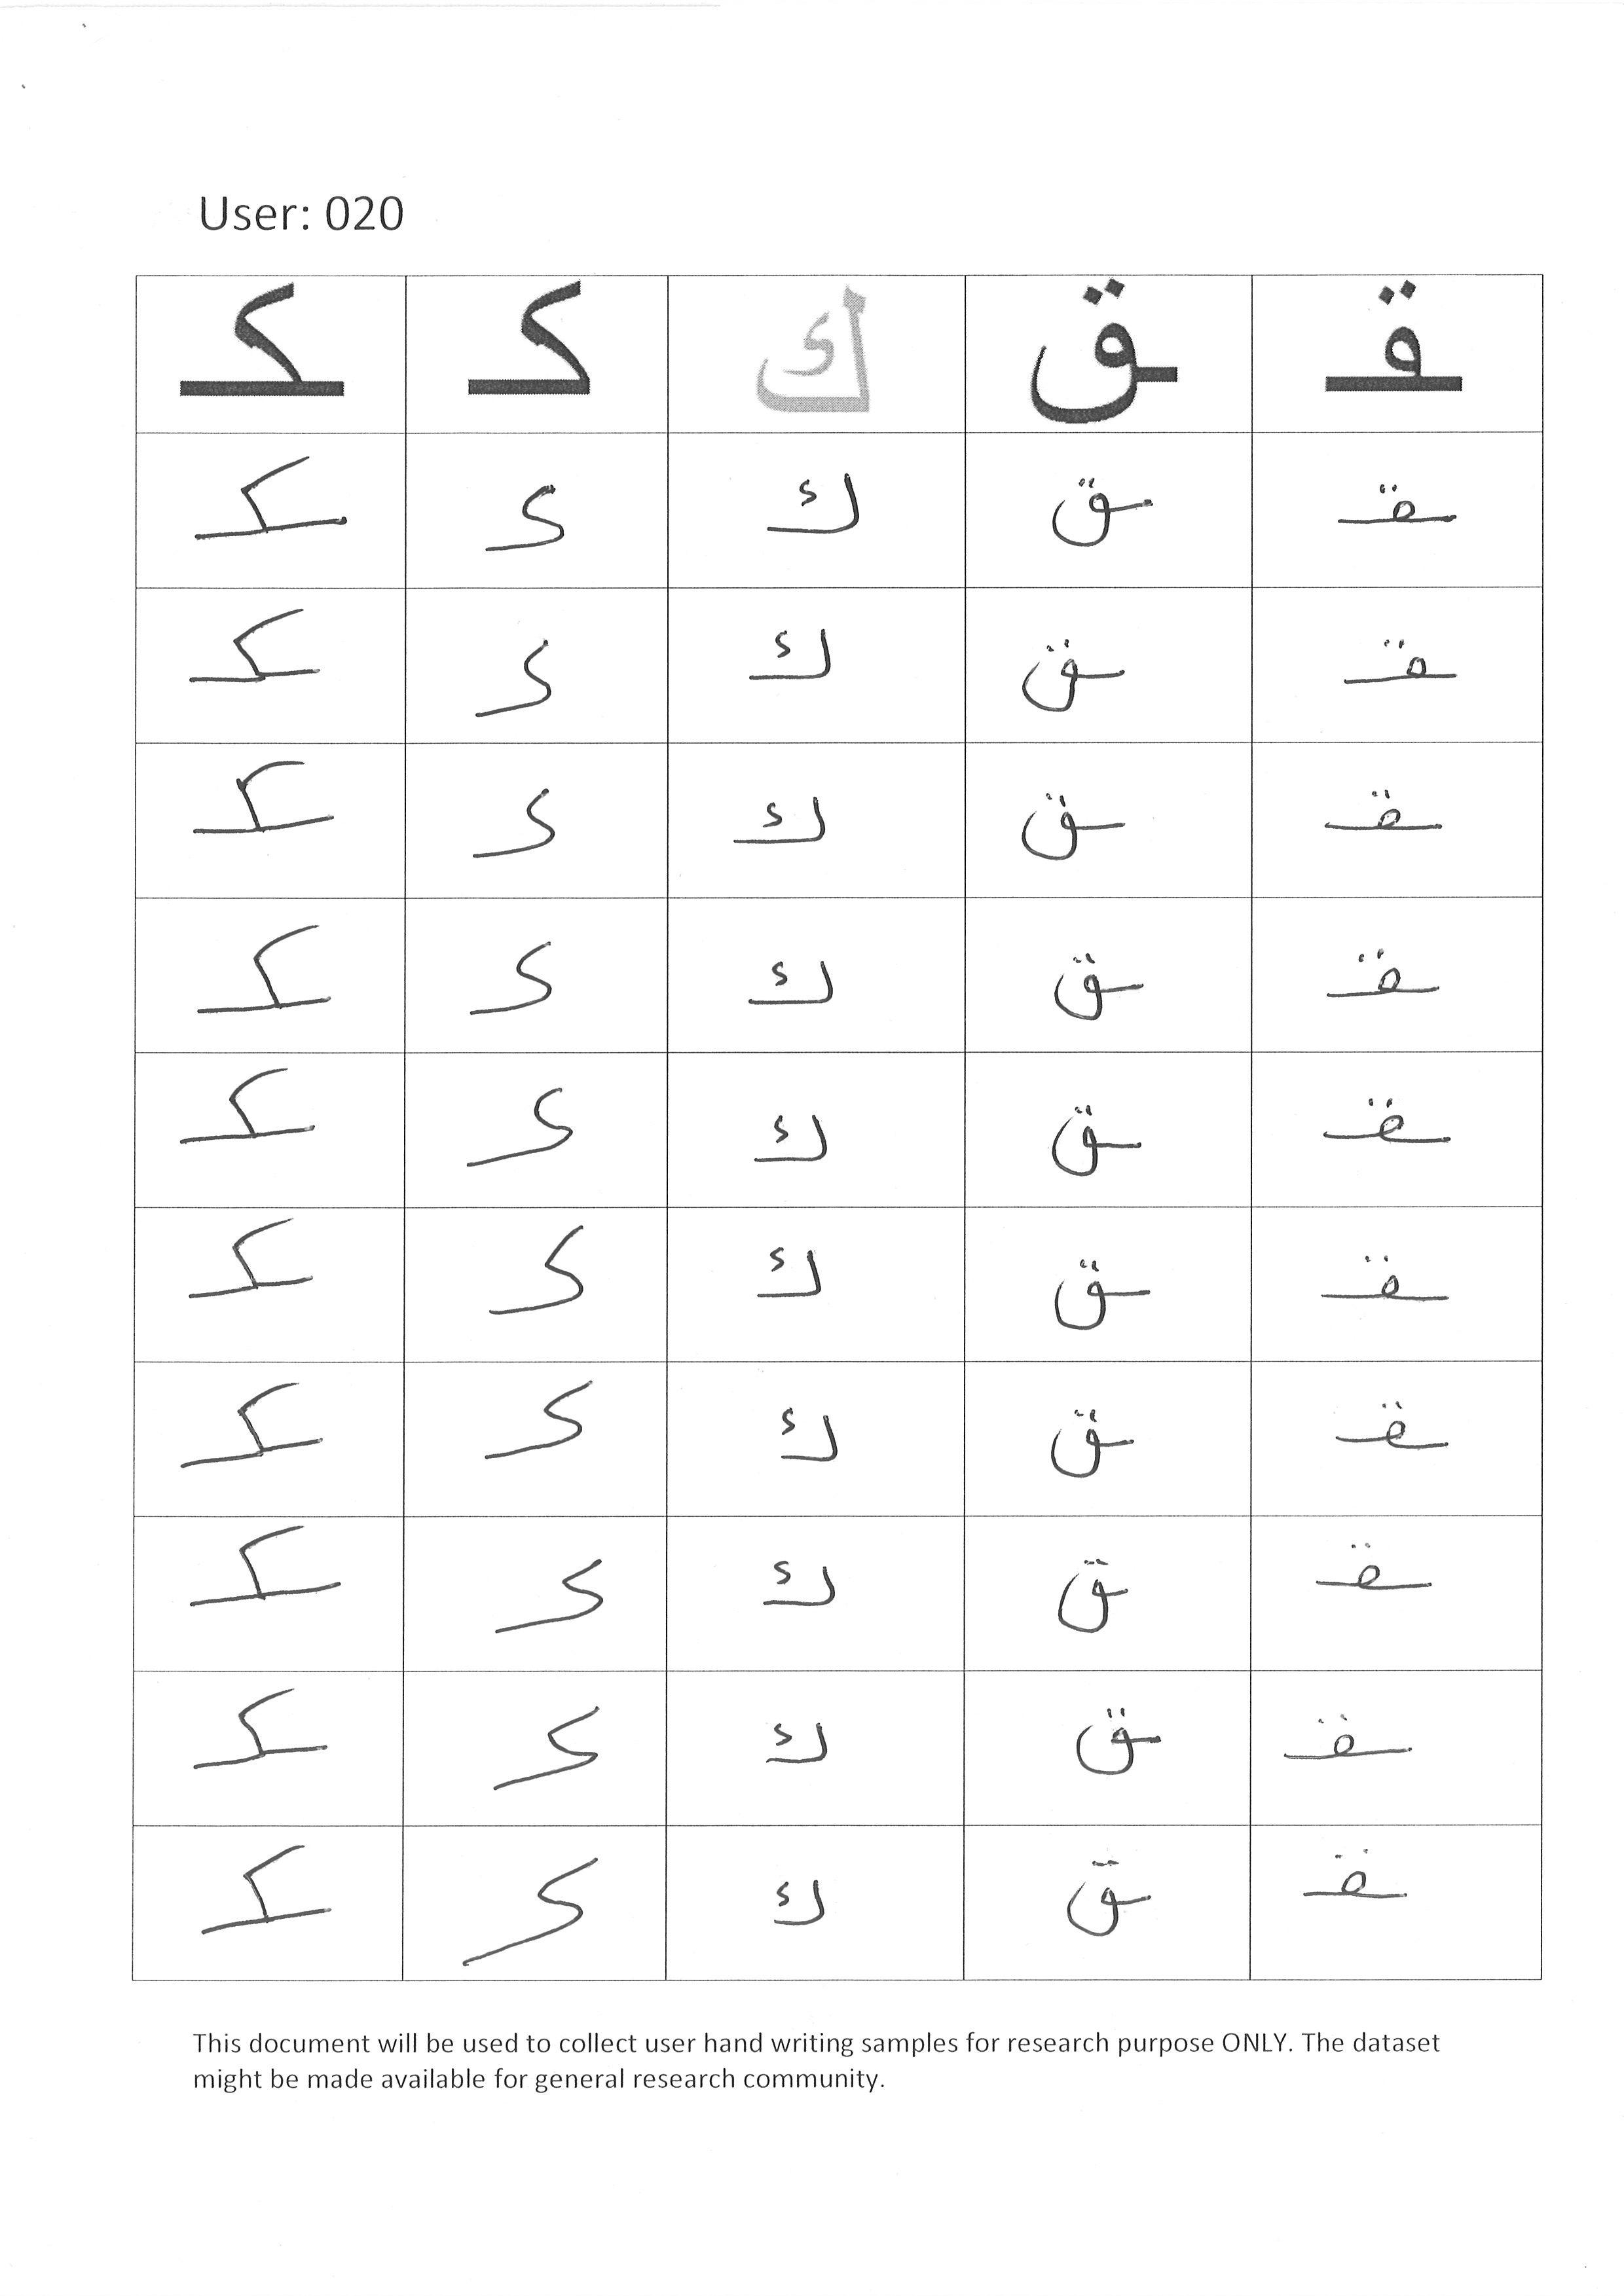 User: 020
ـقـ ـق ك كـ ـكـ
ـقـ ـق ك كـ ـكـ
ـقـ ـق ك كـ ـكـ
ـقـ ـق ك كـ ـكـ
ـقـ ـق ك كـ ـكـ
ـقـ ـق ك كـ ـكـ
ـقـ ـق ك كـ ـكـ
ـقـ ـق ك كـ ـكـ
ـقـ ـق ك كـ ـكـ
ـقـ ـق ك كـ ـكـ
ـقـ ـق ك كـ ـكـ
This document will be used to collect user hand writing samples for research purpose ONLY. The dataset
might be made available for general research community.